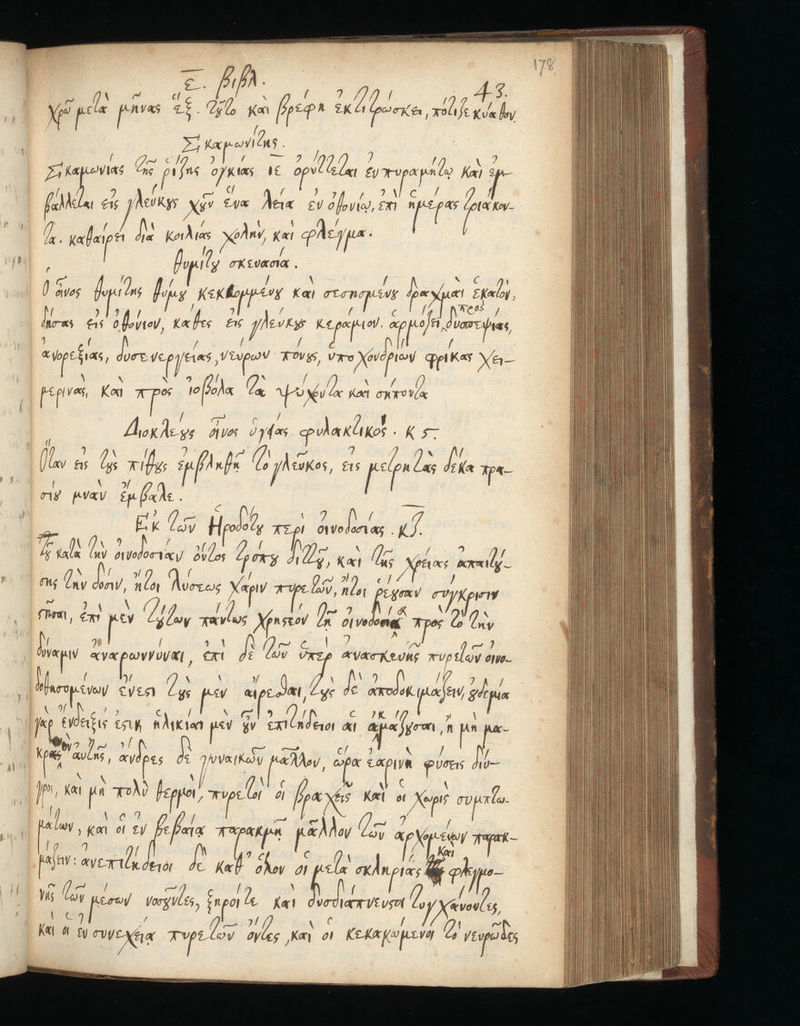 178
ε. βιβλ.
43.
χρῶ μετὰ μῆνας ἓξ. τοῦτο καὶ βρέφη ἐκτιτρώσκει, πότιζε κύαθον.
Σικαμωνίτης.
Σικαμωνίας τῆς ῥίζης ὀγκίας ιε ὀρύττεται ἐν πυραμήτῳ καὶ ἐμ-
βάλλεται εἰς γλεύκους χοῦν ἕνα λεία ἐν ὀθονίῳ, ἐπὶ ἡμέρας τριάκον-
τα. καθαίρει διὰ κοιλίας χολὴν, καὶ φλέγμα.
θυμίτου σκευασία.
Ὁ οἶνος θυμίτης θύμου κεκομμένου καὶ σεσησμένου δραχμαὶ ἑκατὸν,
δήσας εἰς ὀθόνιον, κάθες εἰς γλεύκους κεράμιον. ἁρμόζει πρὸς δυσπεψίας,
ἀνορεξίας, δυσενεργείας, νεύρων πόνους, ὑποχονδρίων φρίκας χει-
μερινὰς, καὶ πρὸς ἰοβόλα τὰ ψύχοντα καὶ σήποντα
Διοκλέους οἶνος ὑγίας φυλακτικός. κϛ.
Ὅταν εἰς τοὺς πίθους ἐμβληθῇ τὸ γλεῦκος, εἰς μετρητὰς δέκα πρα-
σίου μνᾶν ἔμβαλε.
Ἐκ τῶν Ἡροδότου περὶ οἰνοδοσίας. κζ.
Τοῦ κατὰ τὴν οἰνοδοσίαν ὄντος τρόπου διττοῦ, καὶ τῆς χρείας ἀπαιτού-
σης τὴν δόσιν, ἤτοι λύσεως χάριν πυρετῶν, ἤτοι ῥέουσαν σύγκρισιν
στῆσαι, ἐπὶ μὲν τούτων πάντως χρηστέον τῇ οἰνοδοσίᾳ πρὸς τὸ τὴν
δύναμιν ἀναρωννύναι, ἐπὶ δὲ τῶν ὑπὲρ ἀνασκευῆς πυρετῶν οἰνο-
δοθησομένων ἔνεστι τοὺς μὲν αἱρεῖσθαι, τοὺς δὲ ἀποδοκιμάζειν, οὐδεμία
γὰρ ἔνδειξίς ἐστιν ἡλικίαι μὲν οὖν ἐπιτήδειοι αἱ ἀκμάζουσαι, ἢ μὴ μα-
κρὰν αὐτῆς, ἄνδρες δὲ γυναικῶν μᾶλλον, ὥρα ἐαρινὴ φύσεις δίυ-
γροι, καὶ μὴ πολὺ θερμοὶ, πυρετοὶ οἱ βραχεῖς καὶ οἱ χωρὶς συμπτω-
μάτων, καὶ οἱ ἐν βεβαίᾳ παρακμῇ μᾶλλον τῶν ἀρχομένων παρακ-
μάζειν: ἀνεπιτήδειοι δὲ καθ' ὅλον οἱ μετὰ σκληρίας καὶ φλεγμο-
νῆς τῶν μέσων νοσοῦντες, ξηροί τε καὶ δυσδιάπνευστοι τυγχάνοντες,
καὶ οἱ ἐν συνεχείᾳ πυρετῶν ὄντες, καὶ οἱ κεκακωμένοι τὸ νευρῶδες